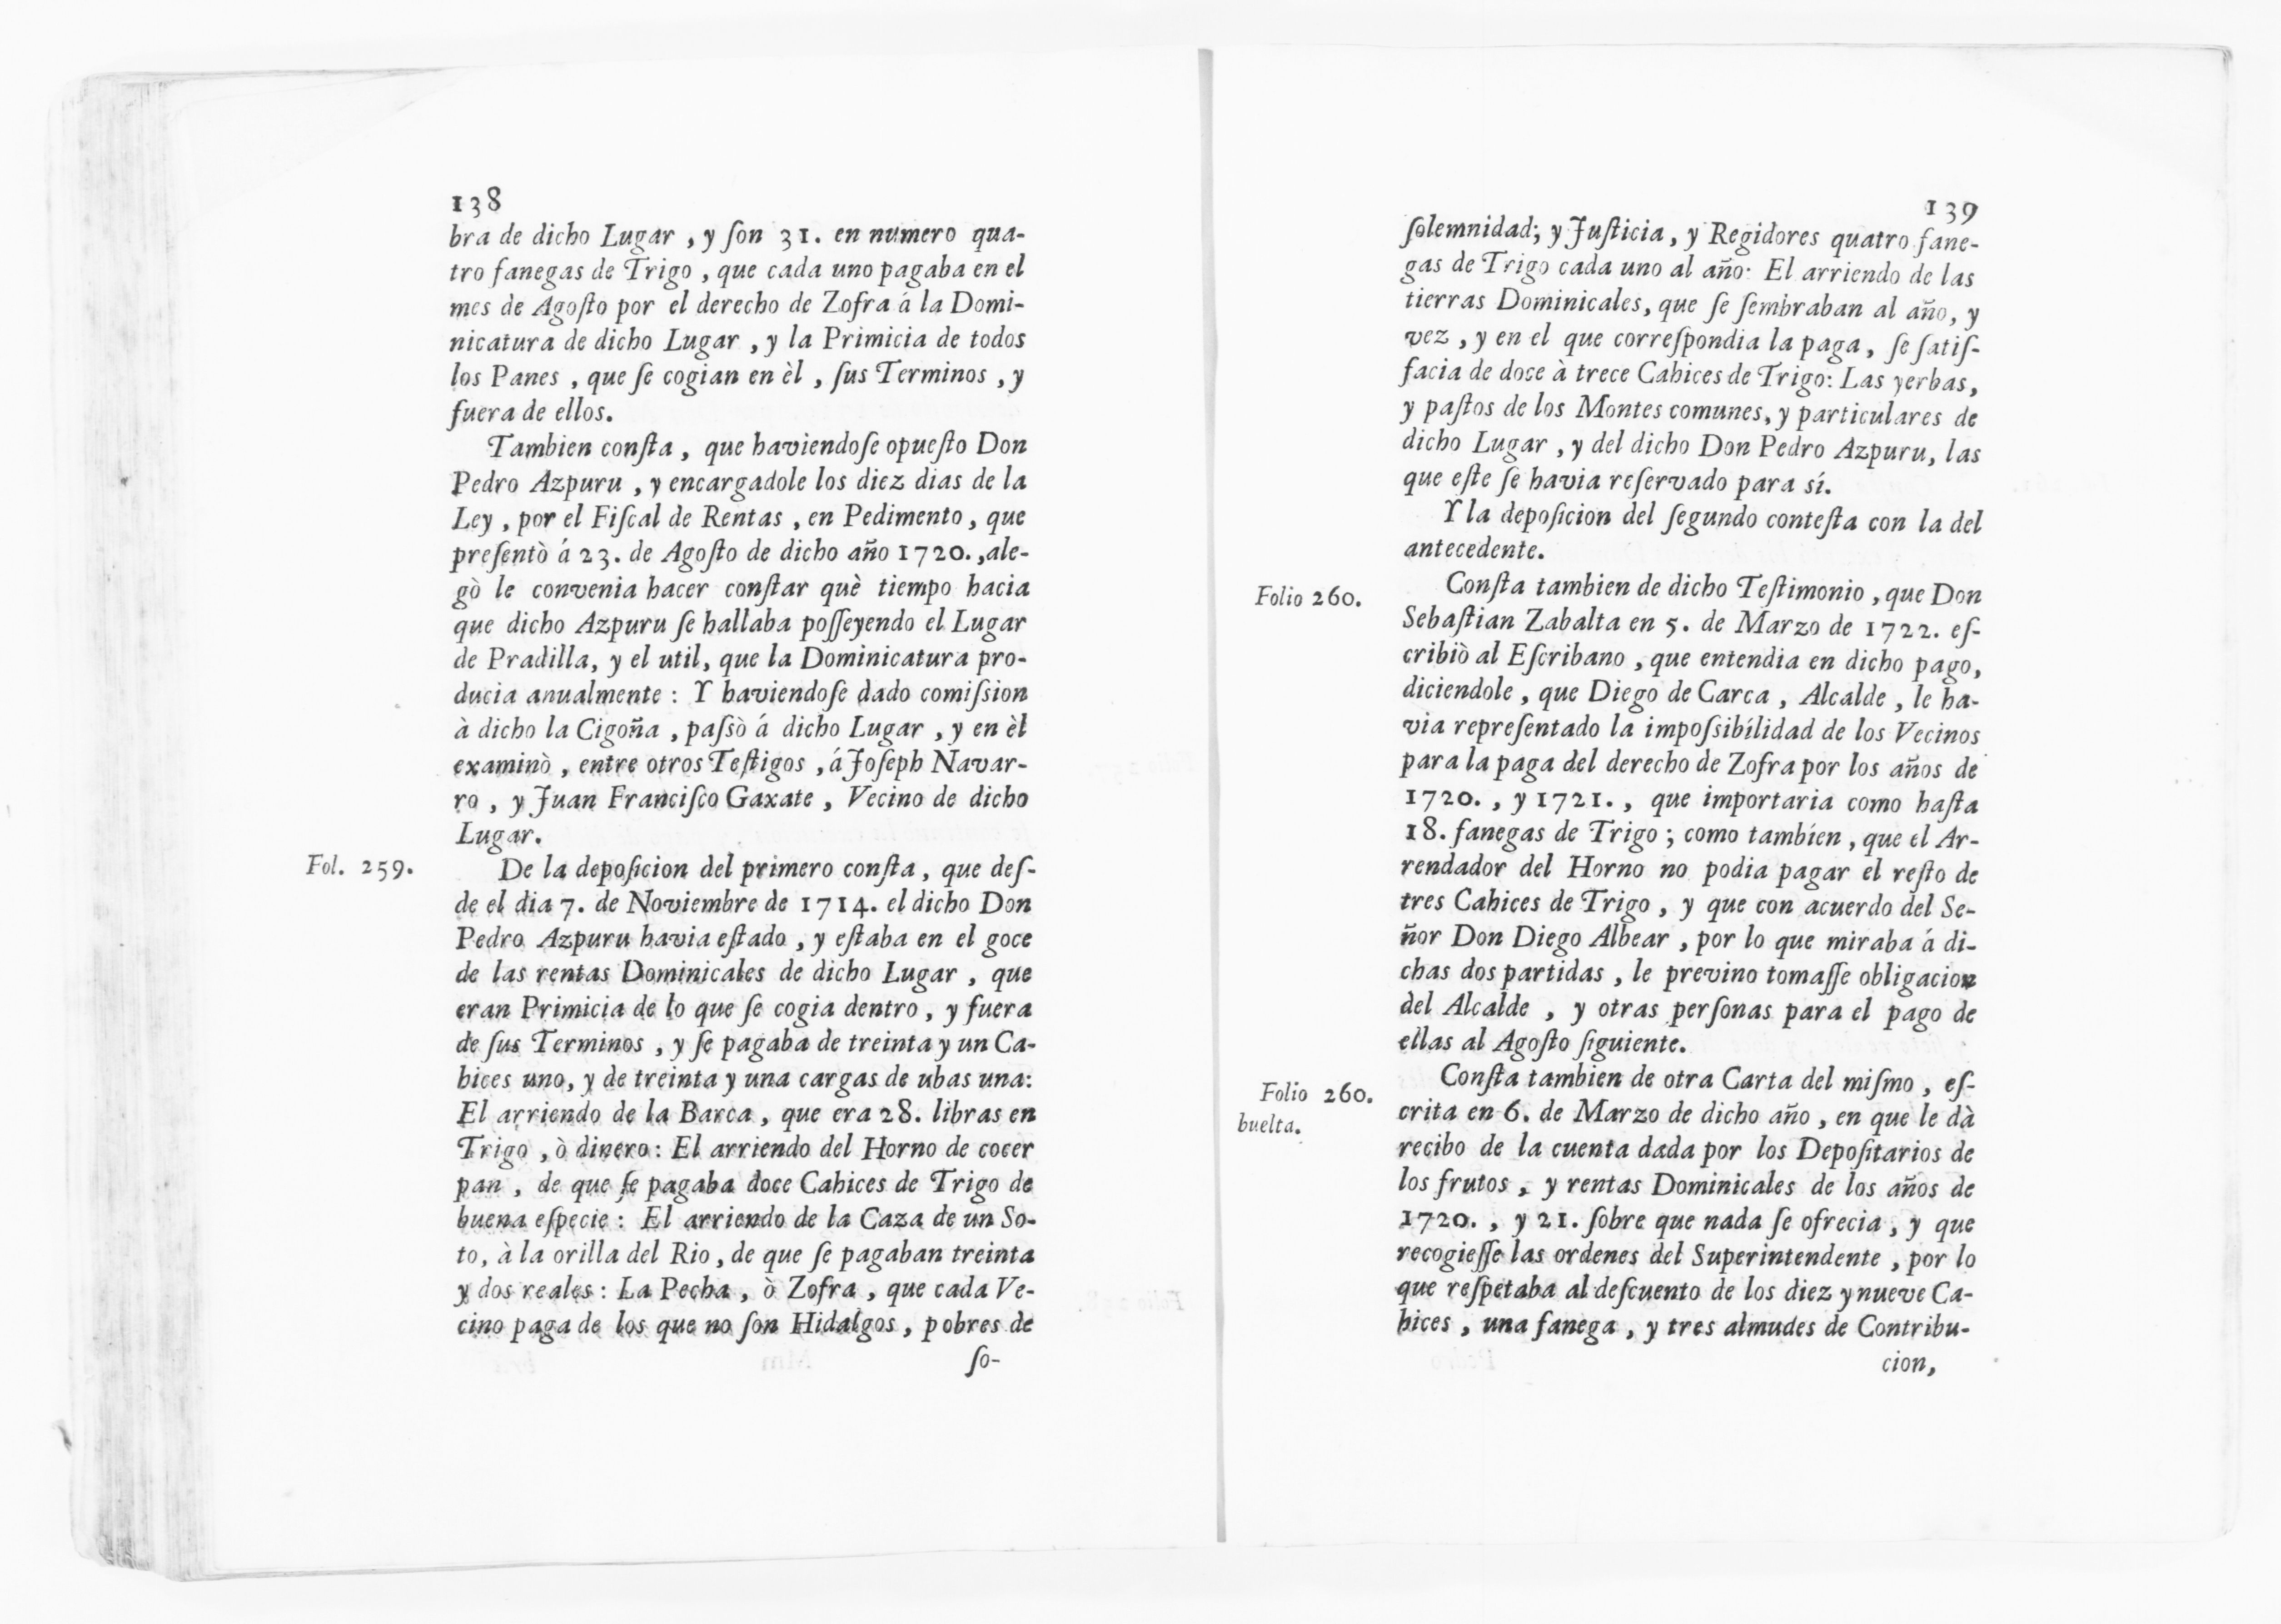 138
bra de dicho Lugar , y ſon 31. en numero qua-
tro fanegas de Trigo , que cada uno pagaba en el
mes de Agoſto por el derecho de Zofra á la Domi-
nicatura de dicho Lugar , y la Primicia de todos
los Panes , que ſe cogian en èl , ſus Terminos , y
fuera de ellos.
Tambien conſta , que haviendoſe opueſto Don
Pedro Azpuru , y encargadole los diez dias de la
Ley , por el Fiſcal de Rentas , en Pedimento , que
preſentò á 23. de Agoſto de dicho año 1720. , ale-
gò le convenia hacer conſtar què tiempo hacia
que dicho Azpuru ſe hallaba poſſeyendo el Lugar
de Pradilla, y el util, que la Dominicatura pro-
ducia anualmente : Y haviendoſe dado comiſsion
à dicho la Cigoña , paſsò á dicho Lugar , y en èl
examinò , entre otros Teſtigos , á Joſeph Navar-
ro , y Juan Franciſco Gaxate , Vecino de dicho
Lugar.
Fol. 259.
De la depoſicion del primero conſta, que deſ-
de el dia 7. de Noviembre de 1714. el dicho Don
Pedro Azpuru havia eſtado , y eſtaba en el goce
de las rentas Dominicales de dicho Lugar , que
eran Primicia de lo que ſe cogia dentro , y fuera
de ſus Terminos , y ſe pagaba de treinta y un Ca-
hices uno, y de treinta y una cargas de ubas una:
El arriendo de la Barca , que era 28. libras en
Trigo , ò dinero : El arriendo del Horno de cocer
pan , de que ſe pagaba doce Cahices de Trigo de
buena eſpecie : El arriendo de la Caza de un So-
to, à la orilla del Rio , de que ſe pagaban treinta
y dos reales : La Pecha , ò Zofra , que cada Ve-
cino paga de los que no ſon Hidalgos , pobres de
ſo-
139
ſolemnidad; y Juſticia, y Regidores quatro fane-
gas de Trigo cada uno al año: El arriendo de las
tierras Dominicales, que ſe ſembraban al año, y
vez , y en el que correſpondia la paga, ſe ſatiſ-
facia de doce à trece Cahices de Trigo: Las yerbas,
y paſtos de los Montes comunes, y particulares de
dicho Lugar , y del dicho Don Pedro Azpuru, las
que eſte ſe havia reſervado para sí.
Y la depoſicion del ſegundo conteſta con la del
antecedente.
Folio 260.
Conſta tambien de dicho Teſtimonio , que Don
Sebaſtian Zabalta en 5. de Marzo de 1722. eſ-
cribiò al Eſcribano , que entendia en dicho pago,
diciendole , que Diego de Carca , Alcalde , le ha-
via repreſentado la impoſsibílidad de los Vecinos
para la paga del derecho de Zofra por los años de
1720. , y 1721. , que importaria como haſta
18. fanegas de Trigo ; como tambíen , que el Ar-
rendador del Horno no podia pagar el reſto de
tres Cahices de Trigo , y que con acuerdo del Se-
ñor Don Diego Albear , por lo que miraba á di-
chas dos partidas , le previno tomaſſe obligacion
del Alcalde , y otras perſonas para el pago de
ellas al Agoſto ſiguiente.
Folio 260.
buelta.
Conſta tambien de otra Carta del miſmo , eſ-
crita en 6. de Marzo de dicho año , en que le dà
recibo de la cuenta dada por los Depoſitarios de
los frutos , y rentas Dominicales de los años de
1720. , y 21. ſobre que nada ſe ofrecia , y que
recogieſſe las ordenes del Superintendente , por lo
que reſpetaba al deſcuento de los diez y nueve Ca-
hices , una fanega , y tres almudes de Contribu-
cion,